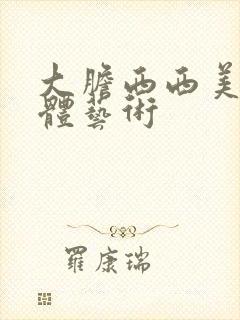 大膽西西美
體藝術
羅康瑞